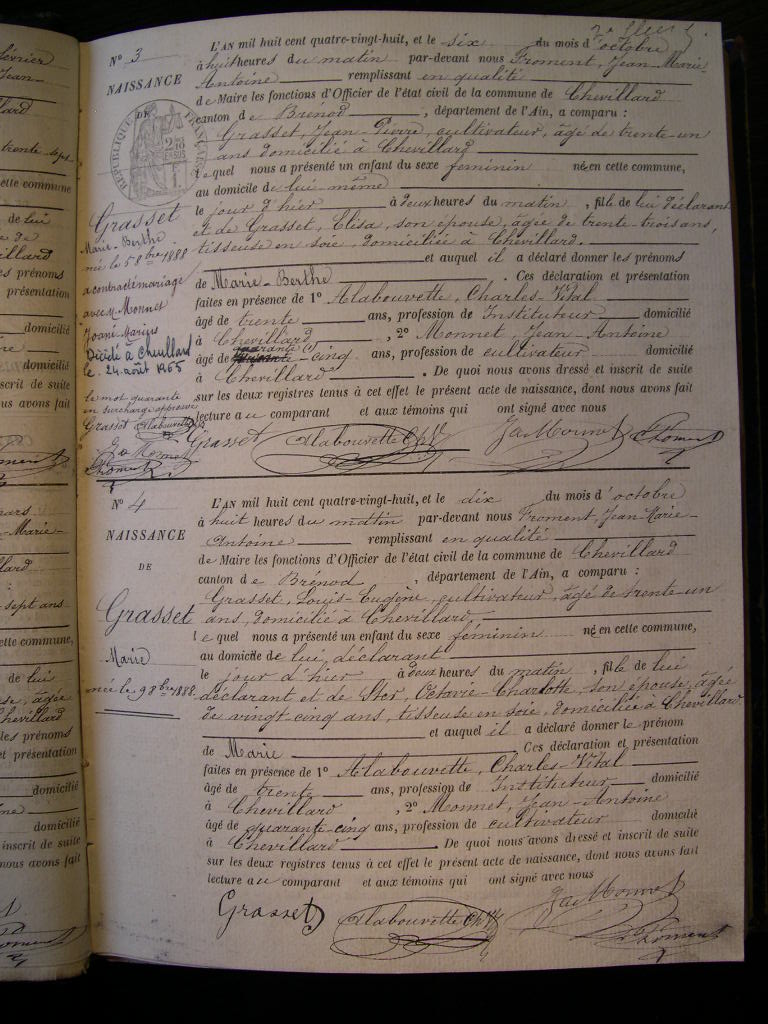 2e feuillet
N° 3
NAISSANCE
DE
RÉPUBLIQUE FRANÇAISE
Grasset
Marie-Berthe
née le 5 8bre 1888
a contracté mariage
avec M. Monnet
Joané-Marius
Décédé à Chevillard
le 24 août 1965
le mot quarante
en surcharge approuvé
Grasset Alabouvette
Ja Monnet
Froment
L'AN mil huit cent quatre-vingt-huit, et le six du mois d'octobre
à huit heures du matin par-devant nous Froment, Jean-Marie-
Antoine remplissant en qualité
de Maire les fonctions d'Officier de l'état civil de la commune de Chevillard
canton de Brénod, département de l'Ain, a comparu :
Grasset, Jean-Pierre, cultivateur, âgé de trente-un
ans domicilié à Chevillard
lequel nous a présenté un enfant du sexe féminin né en cette commune,
au domicile de lui-même
le jour d'hier à deux heures du matin, fille de lui déclarant
et de Grasset, Elisa, son épouse, âgée de trente-trois ans,
tisseuse en soie, domiciliée à Chevillard.
et auquel il a déclaré donner les prénoms
de Marie-Berthe. Ces déclaration et présentation
faites en présence de 1° Alabouvette, Charles-Vital
âgé de trente ans, profession de Instituteur domicilié
à Chevillard, 2° Monnet, Jean-Antoine
quarante (1)
âgé de -cinq ans, profession de cultivateur domicilié
à Chevillard. De quoi nous avons dressé et inscrit de suite
sur les deux registres tenus à cet effet le présent acte de naissance, dont nous avons fait
lecture au comparant et aux témoins qui ont signé avec nous
Grasset Alabouvette Ch V Ja Monnet Froment
N° 4
NAISSANCE
DE
Grasset
Marie
née le 9 8bre 1888.
L'AN mil huit cent quatre-vingt-huit, et le dix du mois d'octobre
à huit heures du matin par-devant nous Froment, Jean-Marie-
Antoine remplissant en qualité
de Maire les fonctions d'Officier de l'état civil de la commune de Chevillard
canton de Brénod, département de l'Ain, a comparu :
Grasset, Louis-Eugène, cultivateur, âgé de trente-un
ans, domicilié à Chevillard,
lequel nous a présenté un enfant du sexe féminin né en cette commune,
au domicile de lui déclarant
le jour d'hier à deux heures du matin, fille de lui
déclarant et de Stor, Octavie-Charlotte, son épouse, âgée
de vingt-cinq ans, tisseuse en soie, domiciliée à Chevillard
et auquel il a déclaré donner le prénom
de Marie. Ces déclaration et présentation
faites en présence de 1° Alabouvette, Charles-Vital
âgé de trente ans, profession de Instituteur domicilié
à Chevillard, 2° Monnet, Jean-Antoine
âgé de quarante-cinq ans, profession de cultivateur domicilié
à Chevillard. De quoi nous avons dressé et inscrit de suite
sur les deux registres tenus à cet effet le présent acte de naissance, dont nous avons fait
lecture au comparant et aux témoins qui ont signé avec nous
Grasset Alabouvette Ch V Ja Monnet
Froment